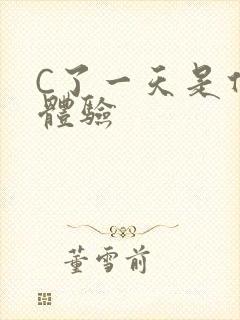 C了一天是
體驗
董雪前